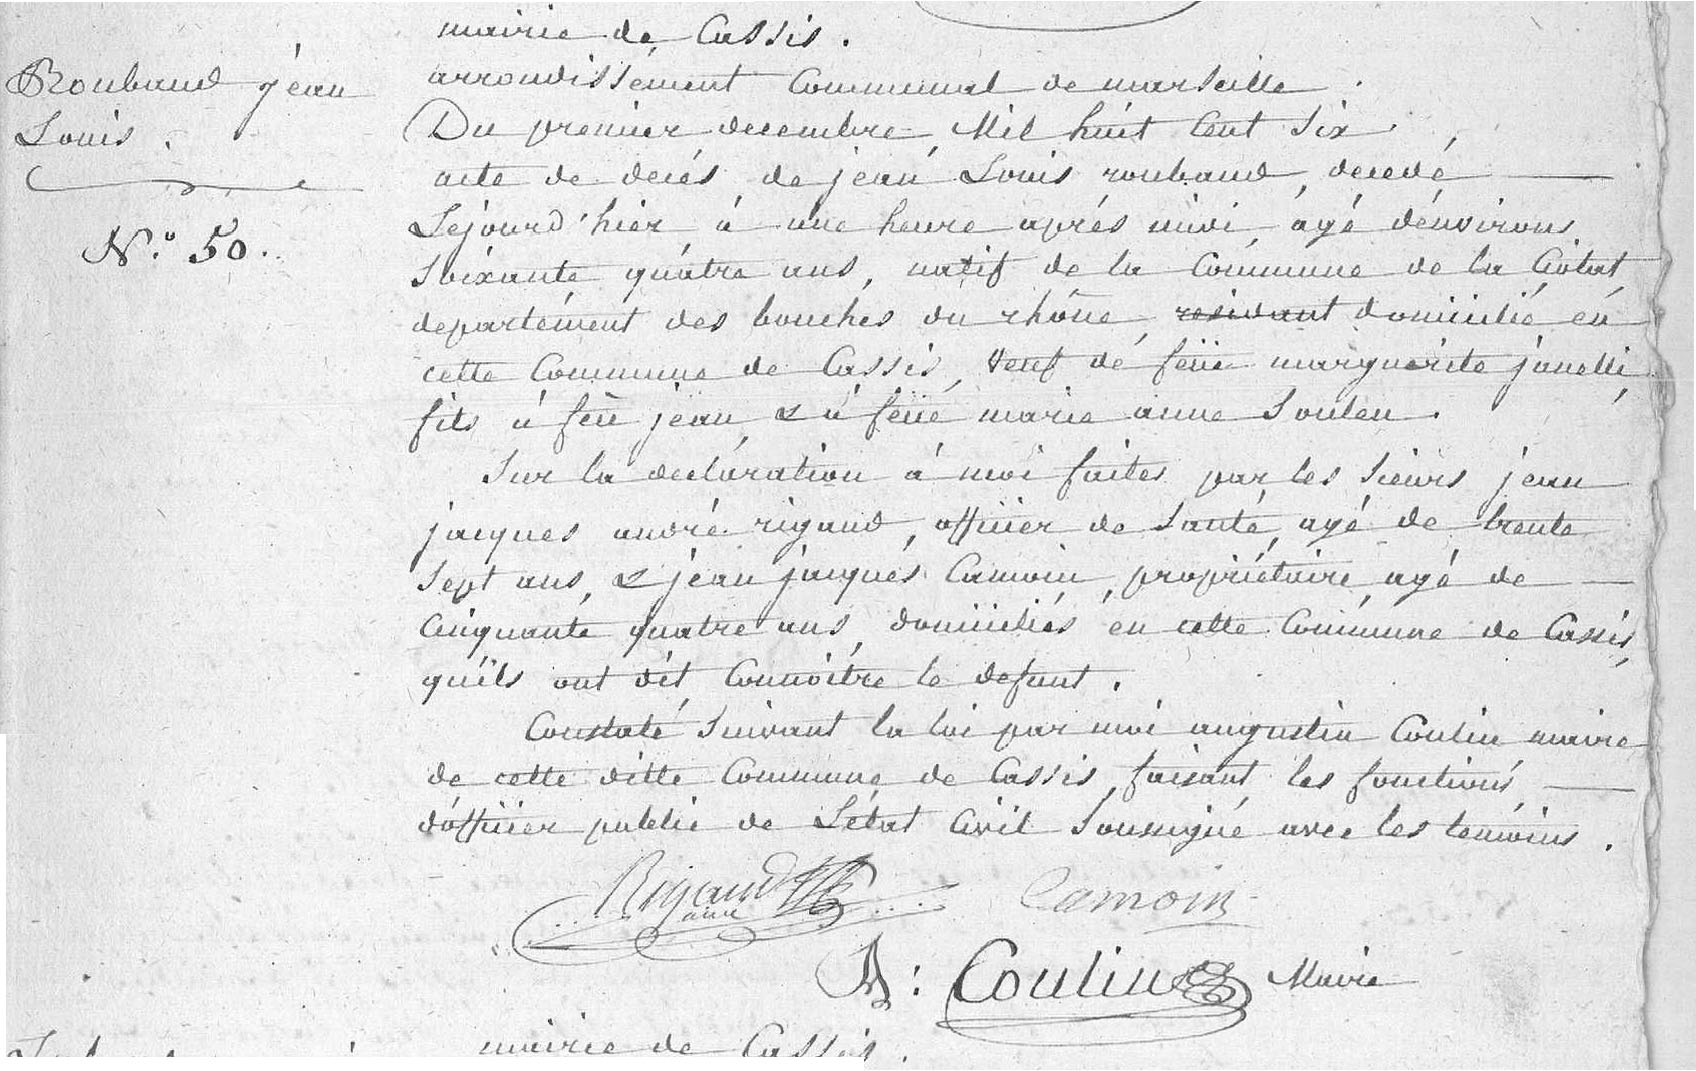 mairie de Cassis.
Roubaud jean
Louis.
N.° 50.
arrondissément Communal de marseille.
Du premier decembre Mil huit Cent Six
acte de decés de jean Louis roubaud, decedé
Lejourd'hier à une heure aprés midi, agé d'environs
Soixante quatre ans, natif de la Commune de la Ciotat,
departément des bouches du rhône, residant domicilié en
cette Commune de Cassis, Veuf de feüe marguerite
fils à feü jean, & à feüe marie anne
Sur la declaration à moi faites par les Sieurs jean
jacques andré rigaud, officier de Santé, agé de trente
Sept ans, & jean jacques Camoin, propriétaire, agé de
Cinquante quatre ans, domiciliés en cette Commune de Cassis,
qu'ils ont dit Connoitre le defunt.
Constaté, Suivant la loi par moi augustin Coulin maire
de cette ditte Commune de Cassis, faisant les fonctions,
d'officier public de L'état Civil Soussigné avec les temoins.
Rigaud Camoin
A: Coulin Maire
mairie de Cassis.